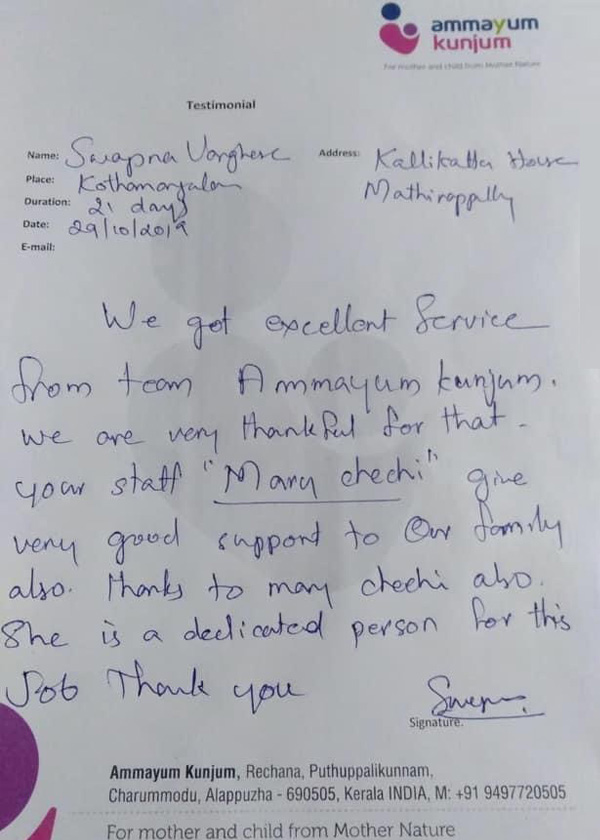 ammayum
kunjum
For mother and child from Mother Nature
Testimonial
Name: Swapna Varghese
Address: Kallikatta House
Place: Kothamangalam
Mathirappally
Duration: 21 days
Date: 29/10/2019
E-mail:
We got excellent Service
from team Ammayum kunjum.
we are very thankful for that -
your staff "Mary chechi" give
very good support to Our family
also. thanks to mary chechi also.
She is a dedicated person for this
Job Thank you
Signature.
Ammayum Kunjum, Rechana, Puthuppalikunnam,
Charummodu, Alappuzha - 690505, Kerala INDIA, M: +91 9497720505
For mother and child from Mother Nature